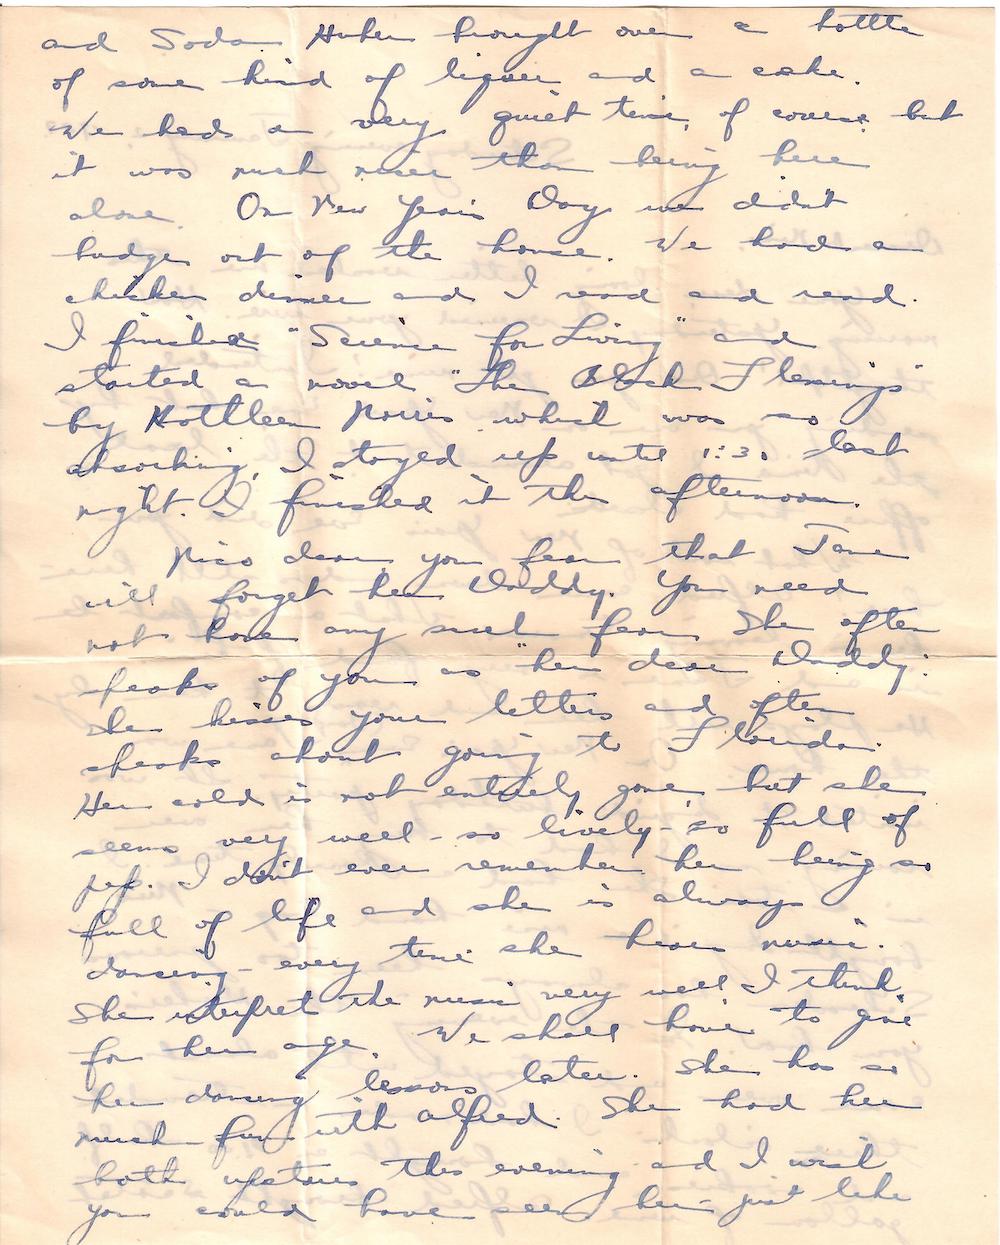 and Soda. Huber brought over a bottle
of some kind of liquer and a cake.
We had a very quiet time, of course but
it was much nicer than being here
alone. On New Years Day we didn't
budge out of the house. We had a
chicken dinner and I read and read.
I finished "Science for Living" and
started a novel "The Black Flemings"
by Kathleen Norris which was so
absorbing, I stayed up until 1:30 last
night. I finished it this afternoon.
Nico dear, you fear that Jane
will forget her Daddy. You need
not have any such fear. She often
speaks of you as "her dear Daddy."
She kisses your letters and often
speaks about going to Florida.
Her cold is not entirely gone, but she
seems very well - so lively - so full of
pep. I don't ever remember her being so
full of life and she is always
dancing - every time she hears music.
She interpret the music very well I think,
for her age. We shall have to give
her dancing lessons later. She has so
much fun with Alfred. She had her
bath upstairs this evening and I wish
you could have seen her - just like